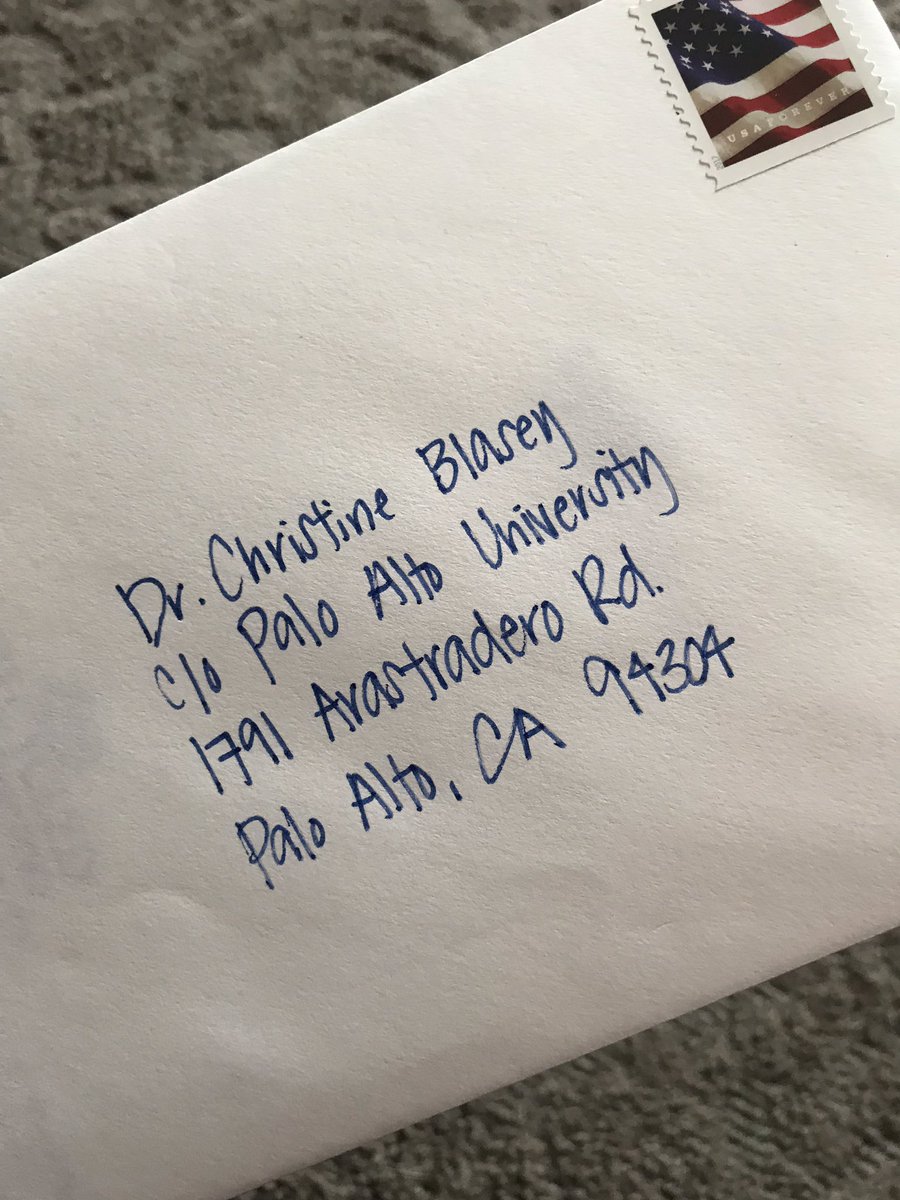 USA FOREVER
Dr. Christine Blasey
c/o Palo Alto University
1791 Arastradero Rd.
Palo Alto, CA 94304